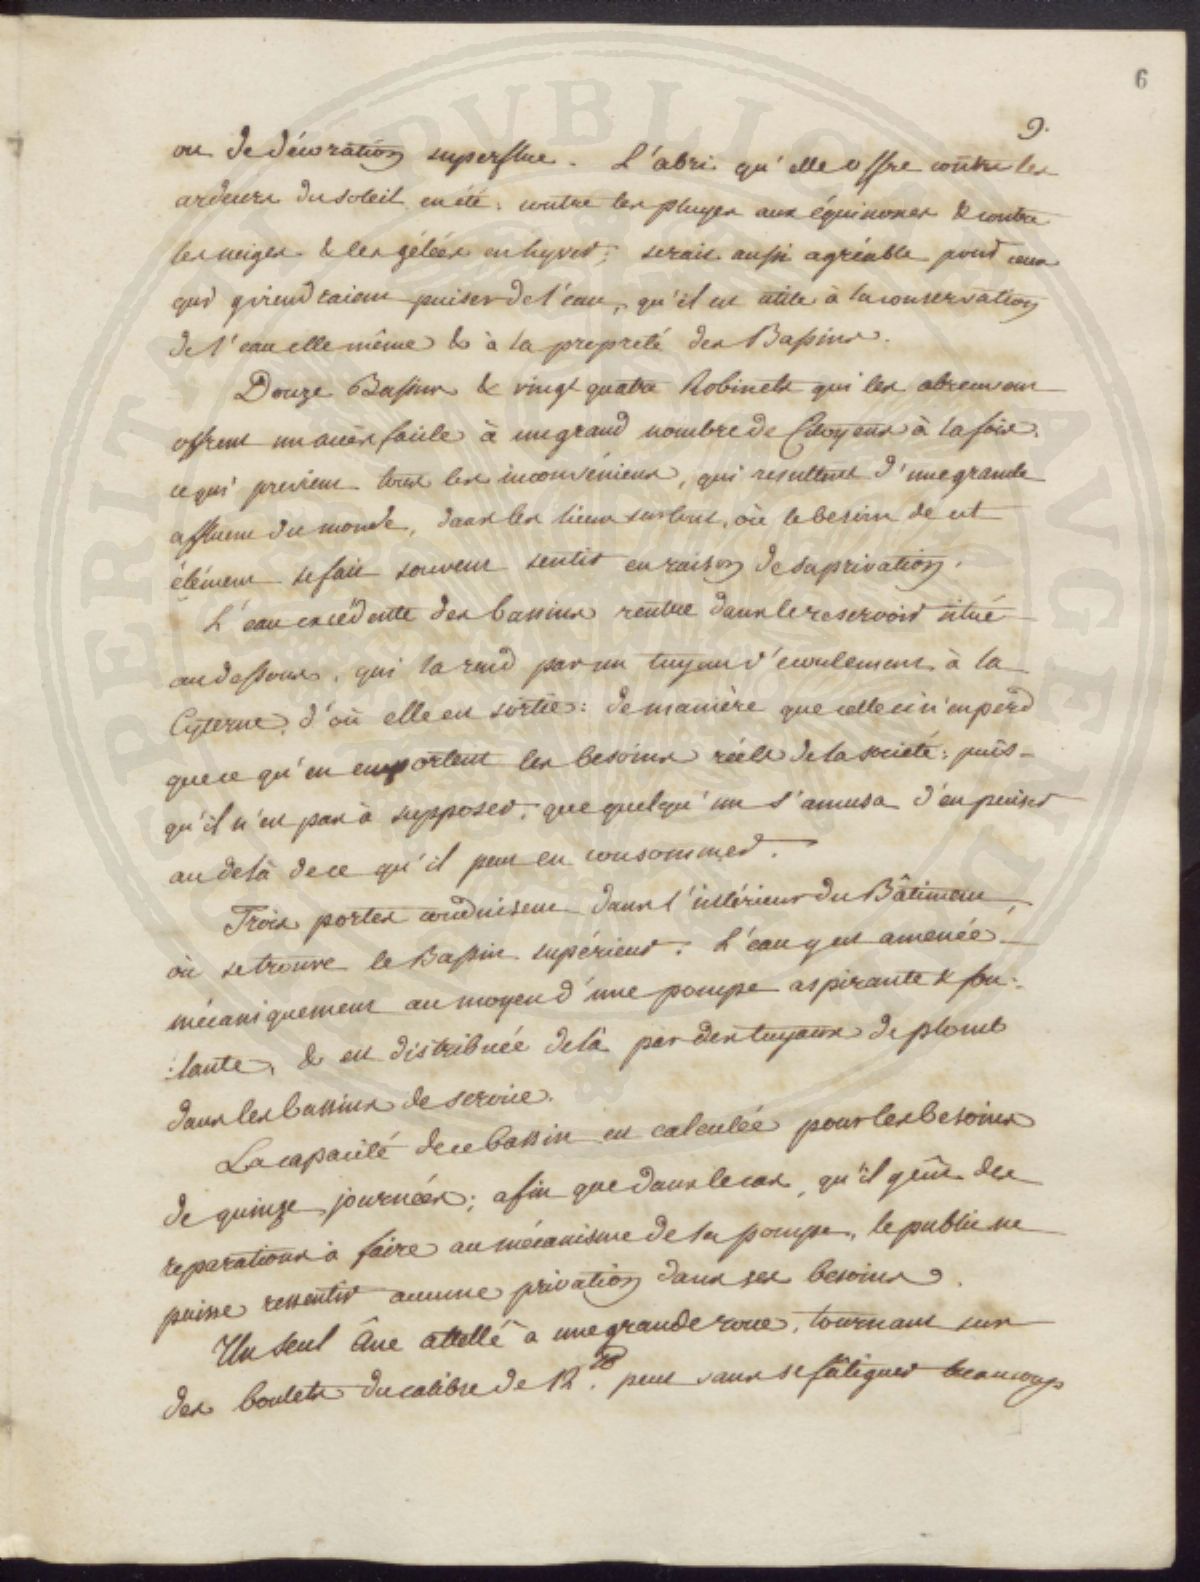 6
9.
ou de décoration superflue. L'abri qu'elle offre contre les
ardeurs du soleil en été; contre les pluyes aux équinoxes & contre
les neiges & les gélées en hyver; serait aussi agréable pour ceux
qui y viendraient puiser de l'eau, qu'il est utile à la conservation
de l'eau elle même & à la propreté des Bassins.
Douze Bassins & vingt quatre Robinets qui les abreuvent
offrent un accès facile à un grand nombre de Citoyens à la fois,
ce qui previent tous les inconvéniens, qui resultent d'une grande
affluence du monde, dans les lieux surtout, où le besoin de cet
élément se fait souvent sentir en raison de sa privation.
L'eau excédente des bassins rentre dans le reservoir situé
au dessous, qui la rend par un tuyau d'écoulement à la
Cyterne, d'où elle est sortie: de manière que celle ci n'en perd
que ce qu'en emportent les besoins réels de la société: puis-
qu'il n'est pas à supposer, que quelqu'un s'amusa d'en puiser
au delà de ce qu'il peut en consommer.
Trois portes conduisent dans l'intérieur du Bâtiment,
où se trouve le Bassin supérieur. L'eau y est amenée
mécaniquement au moyen d'une pompe aspirante & fou-
:lante, & est distribuée delà par des tuyaux de plomb
dans les bassins de service.
La capacité de ce bassin est calculée pour les besoins
de quinze journées; afin que dans le cas, qu'il y eût des
reparations à faire au mécanisme de la pompe, le public ne
puisse ressentir aucune privation dans ses besoins.
Un seul âne attellé à une grande roue, tournant sur
des boulets du calibre de 12. peut sans se fâtiguer beaucoup